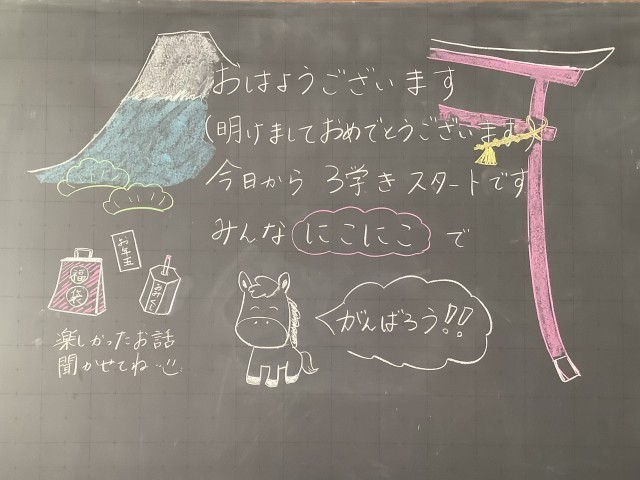 おはようございます
(明けましておめでとうございます)
今日から 3学き スタートです
みんな にこにこ で
がんばろう!!
お年玉
福袋
おみくじ
楽しかったお話
聞かせてね